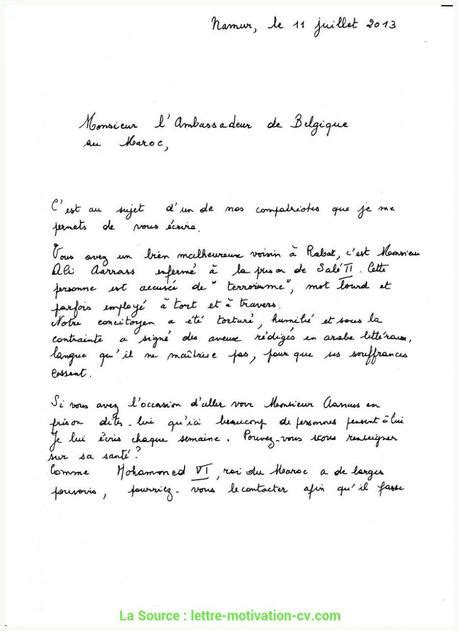 Namur, le 11 juillet 2013
Monsieur l'Ambassadeur de Belgique
au Maroc,
C'est au sujet d'un de nos compatriotes que je me
permets de vous écrire.
Vous avez un bien malheureux voisin à Rabat, c'est Monsieur
Ali Aarrass enfermé à la prison de Salé II. Cette
personne est accusée de "terrorisme", mot lourd et
parfois employé à tort et à travers.
Notre concitoyen a été torturé, humilié et sous la
contrainte a signé des aveux rédigés en arabe littéraire,
langue qu'il ne maîtrise pas, pour que ses souffrances
cessent.
Si vous avez l'occasion d'aller voir Monsieur Aarrass en
prison dites-lui qu'ici beaucoup de personnes pensent à lui
Je lui écris chaque semaine. Pouvez-vous nous renseigner
sur sa santé?
Comme Mohammed VI, roi du Maroc a de larges
pouvoirs, pourriez-vous le contacter afin qu'il fasse
La Source : lettre-motivation-cv.com